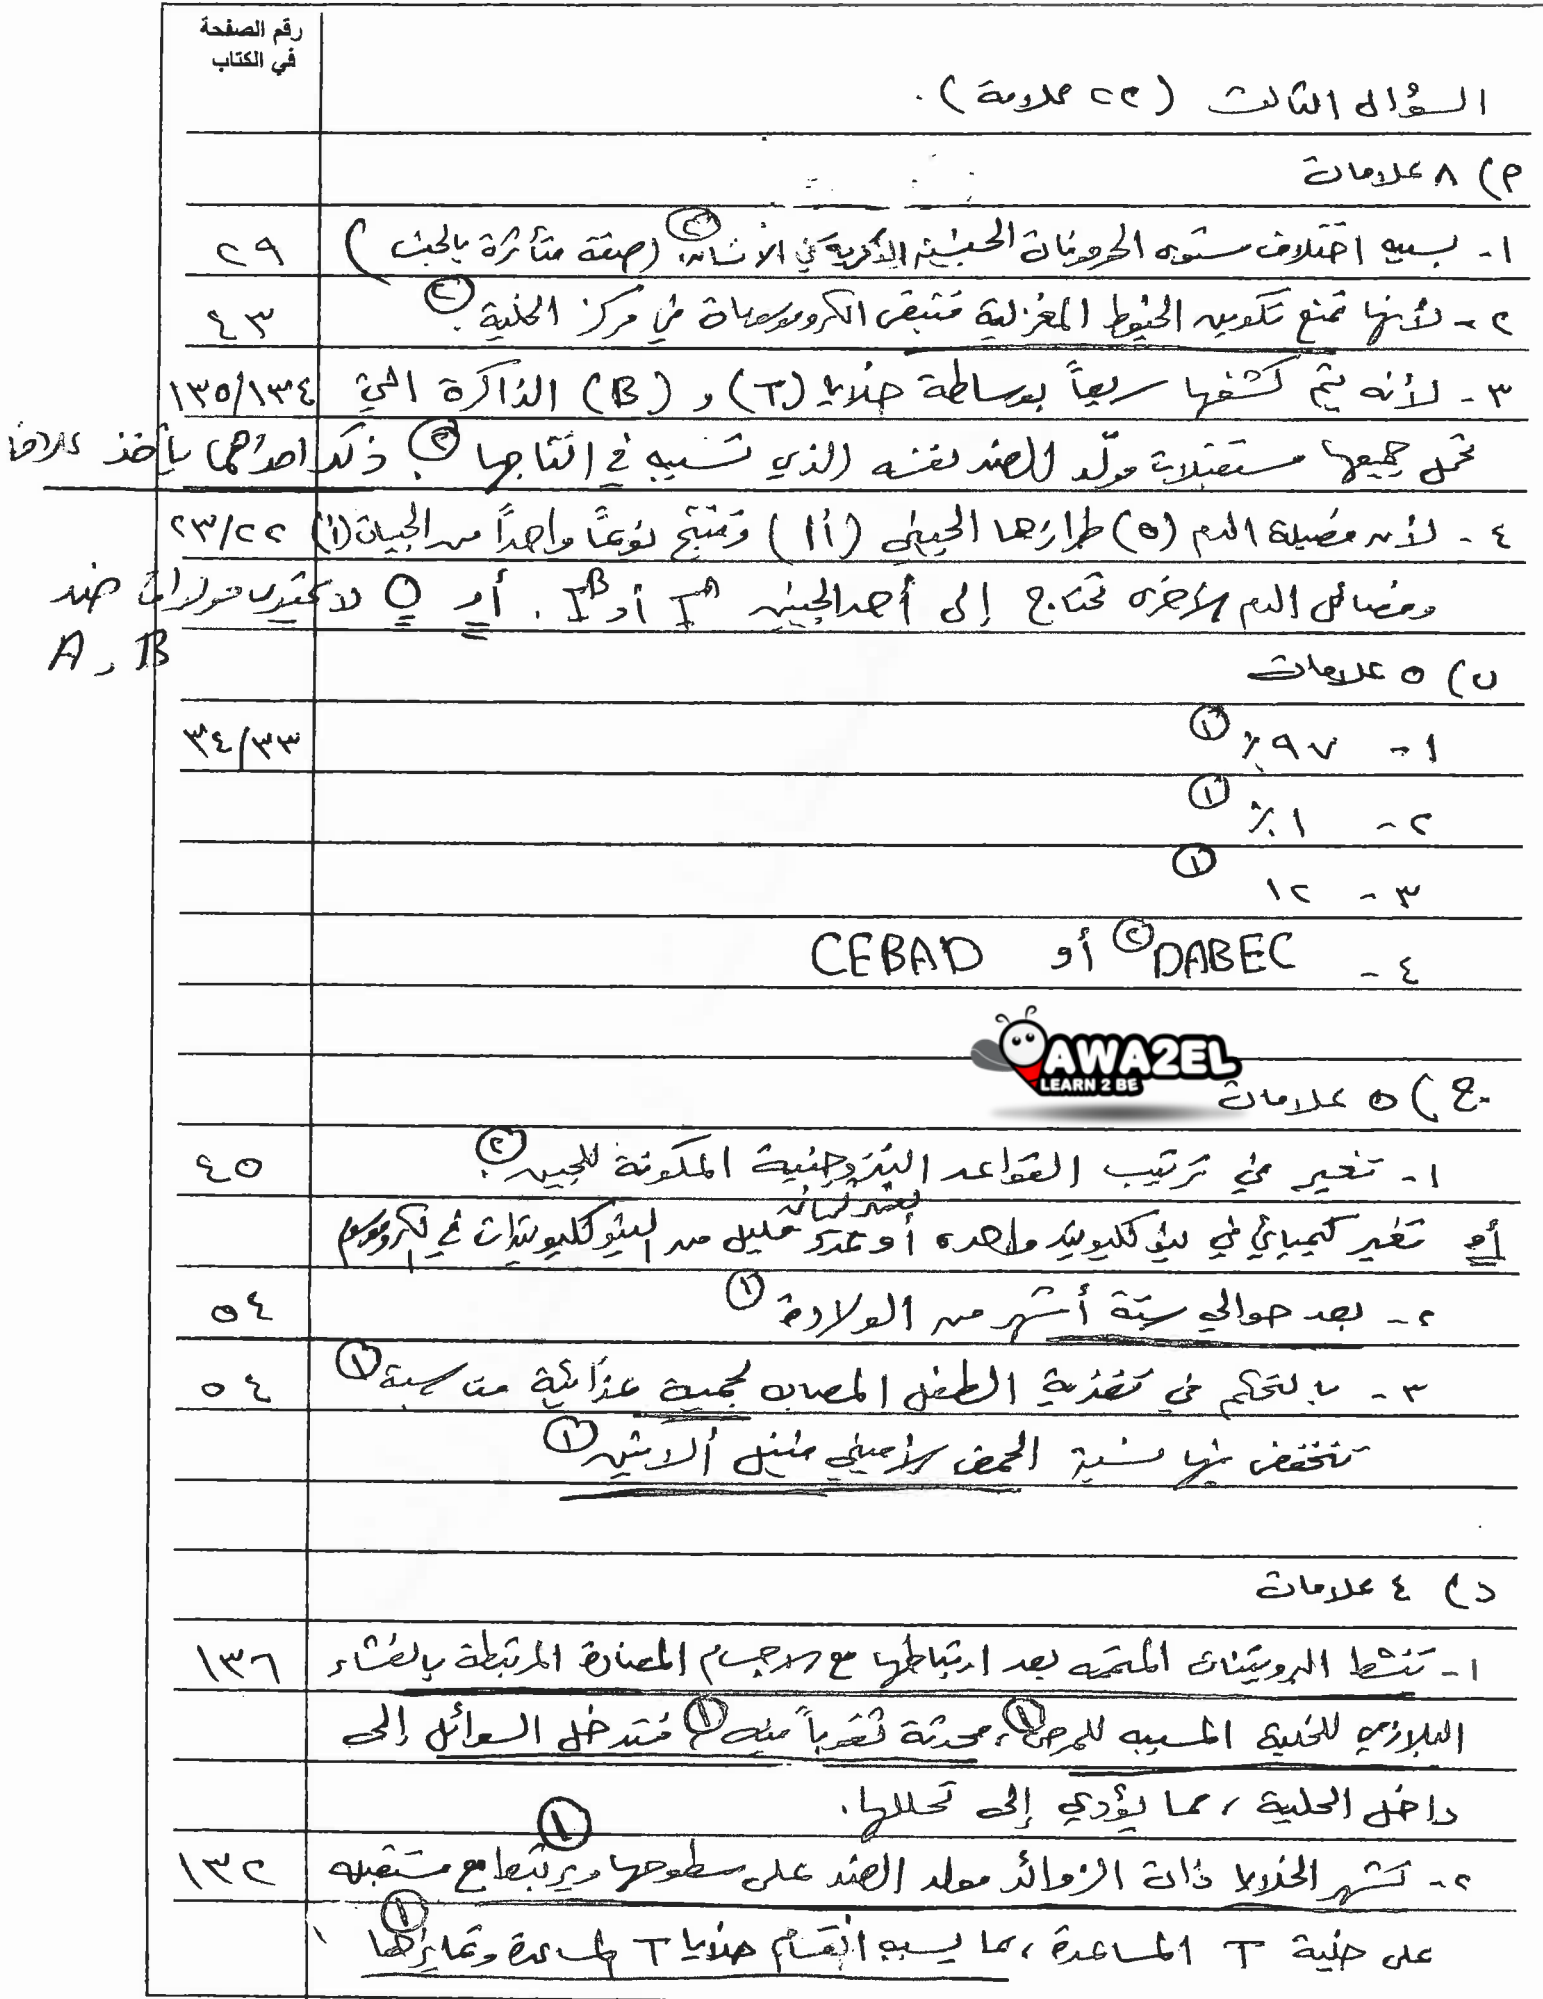 رقم الصفحة
في الكتاب
السؤال الثالث (٢٢ علامة).
أ) ٨ علامات
١- بسبب اختلاف مستوى الهرمونات الجنسية الذكرية في الانسان ② (صفة متأثرة بالجنس) ٢٩
٢- لأنها تمنع تكوين الخيوط المغزلية فتبقى الكروموسومات في مركز الخلية. ② ٤٣
٣- لأنه يتم كشفها سريعاً بوساطة خلايا (T) و (B) الذاكرة التي ١٣٥/١٣٤
تحمل جميعها مستقبلات مولّد الضد نفسه الذي تسبب في انتاجها ②. ذكر احداهما يأخذ علامة
٤- لأن فصيلة الدم (O) طرازها الجيني (ii) وتنتج نوعاً واحداً من الجينات (i) ٢٣/٢٢
وفصائل الدم الأخرى تحتاج إلى أحد الجينين Iᴬ أو Iᴮ. أو O لا تحتوي مولدات ضد
A و B
ب) ٥ علامات
١- ٩٧٪ ① ٣٤/٣٣
٢- ١٪ ①
٣- ١٢ ①
٤- DABEC ② أو CEBAD
AWA2EL
LEARN 2 BE
ج) ٥ علامات
١- تغير في ترتيب القواعد النيتروجينية المكونة للجين ②. ٤٥
أو تغير كيميائي في نيوكليوتيد واحدة أو عدد قليل من النيوكليوتيدات في الكروموسوم
٢- بعد حوالي ستة أشهر من الولادة ① ٥٤
٣- بالتحكم في تغذية الطفل المصاب بحمية غذائية مناسبة ① ٥٤
تنخفض فيها نسبة الحمض الأميني فينيل ألانين ①
د) ٤ علامات
١- تنشط البروتينات المتممة بعد ارتباطها مع الاجسام المضادة المرتبطة بالغشاء ١٣٦
البلازمي للخلية المسببة للمرض ①، محدثة ثقوباً فيه ① فتدخل السوائل إلى
داخل الخلية، مما يؤدي إلى تحللها.
٢- تشهر الخلايا ذات الزوائد مولد الضد على سطوحها ① ويرتبط مع مستقبله ١٣٢
على خلية T المساعدة، مما يسبب انقسام خلايا T المساعدة وتمايزها ①